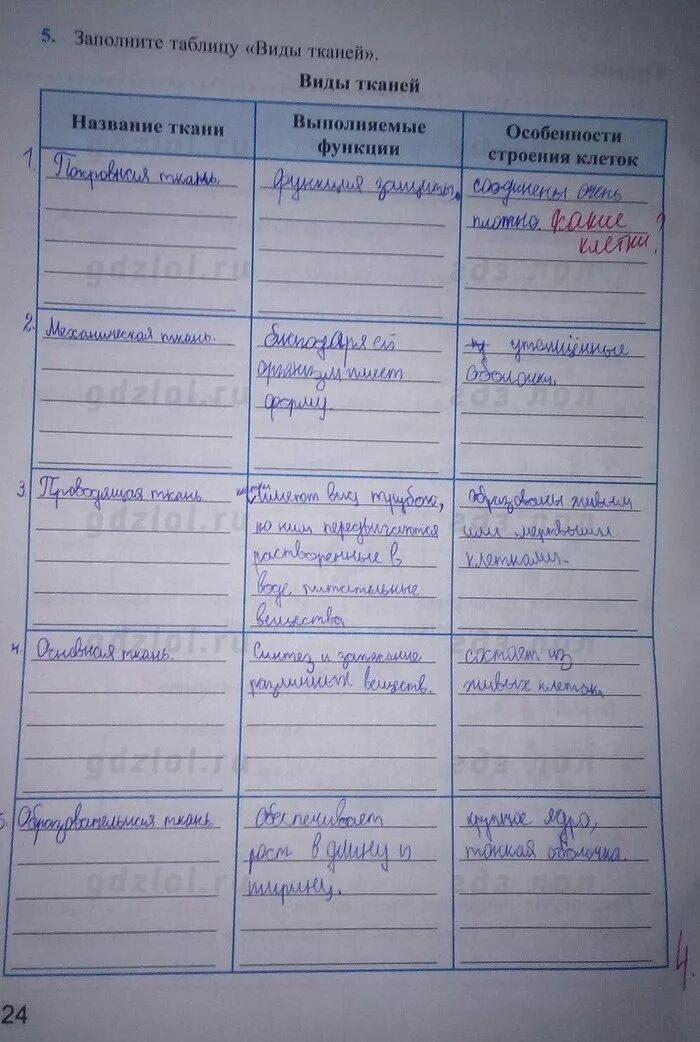 5. Заполните таблицу «Виды тканей».
Виды тканей
Название ткани
Выполняемые функции
Особенности строения клеток
1. Покровная ткань.
функция защиты.
соединены очень
плотно. какие
клетки?
2. Механическая ткань.
благодаря ей
организм имеет
форму.
утолщённые
оболочки.
3. Проводящая ткань
имеют вид
по ним передвигаются
растворенные в
воде питательные
вещества
образованы живыми
или мертвыми
клетками.
4. Основная ткань.
Синтез и запасание
различных веществ.
состоят из
живых клеток.
5. Образовательная ткань.
Обеспечивает
рост в длину и
ширину.
крупное ядро,
тонкая оболочка.
4.
24
gdzlol.ru
gdzlol.ru
gdzlol.ru
gdzlol.ru
gdzlol.ru
gdzlol.ru